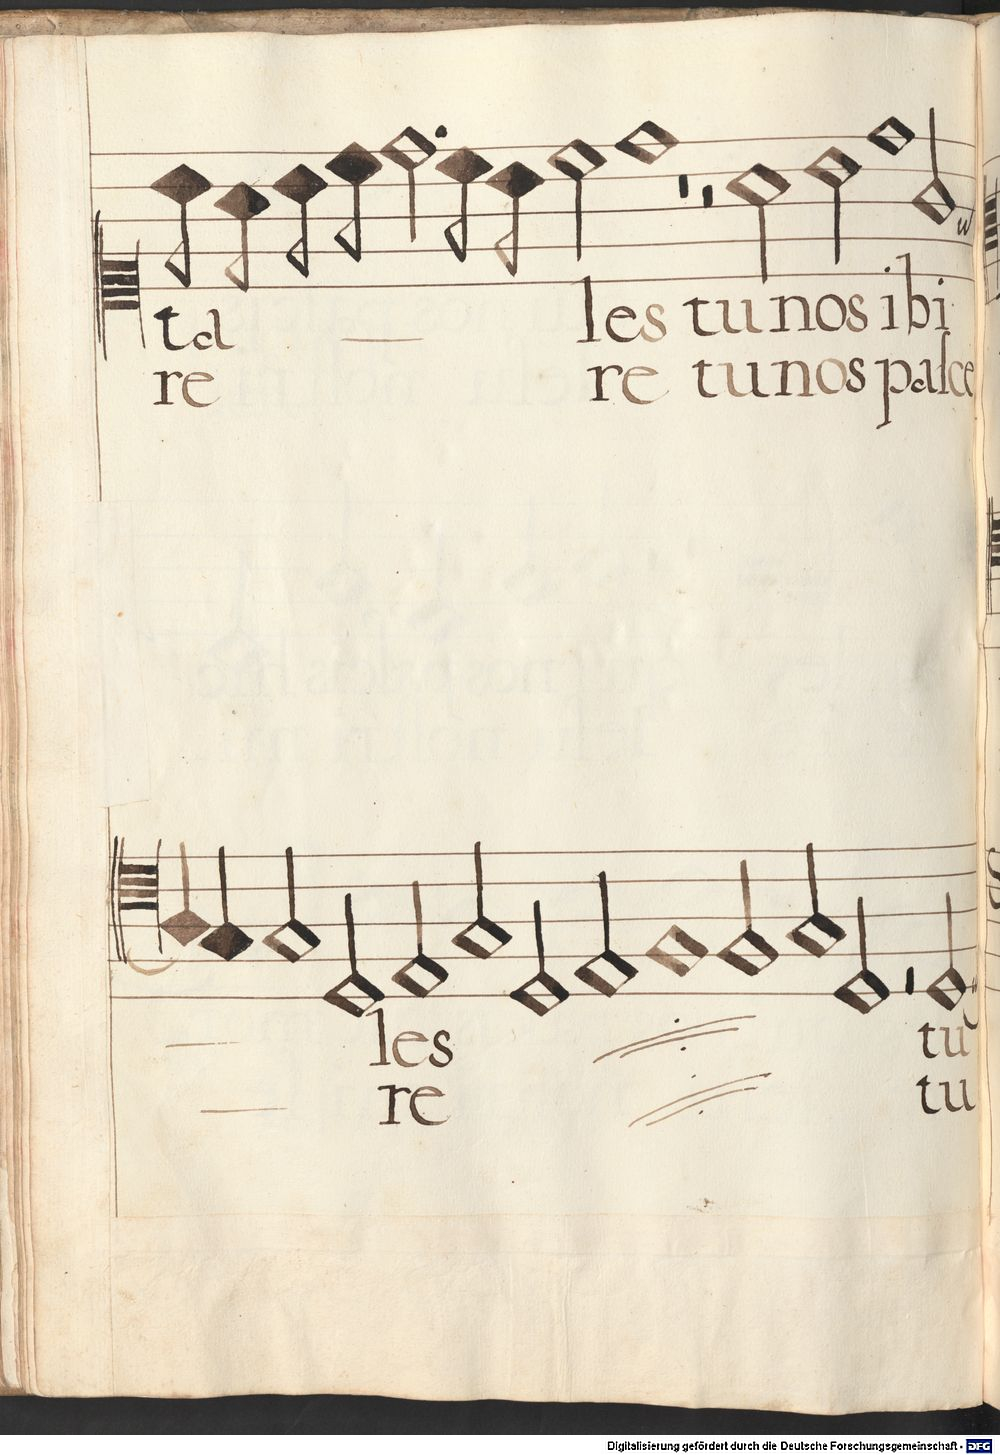 ta les tu nos ibi
re re tu nos pasce
les tu
re tu
Digitalisierung gefördert durch die Deutsche Forschungsgemeinschaft - DFG